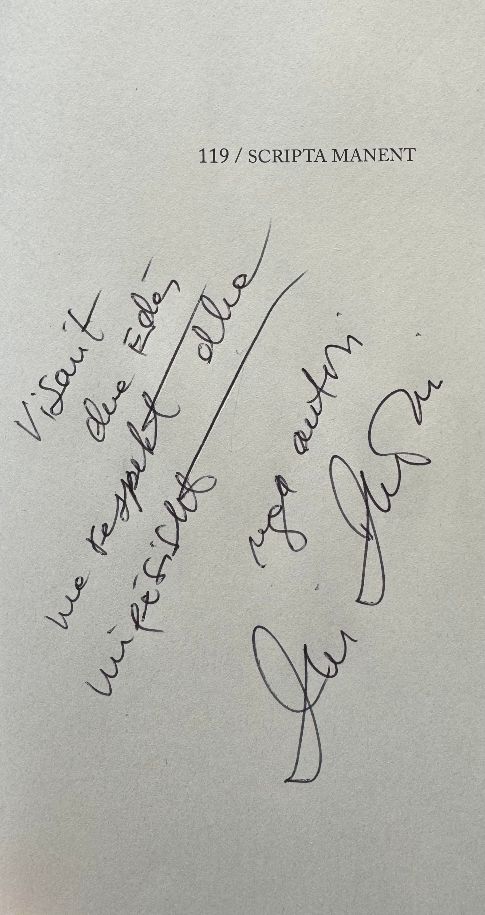 119 / SCRIPTA MANENT
Visarit
dhe Edës
me respekt dhe
mirësisht
nga autori